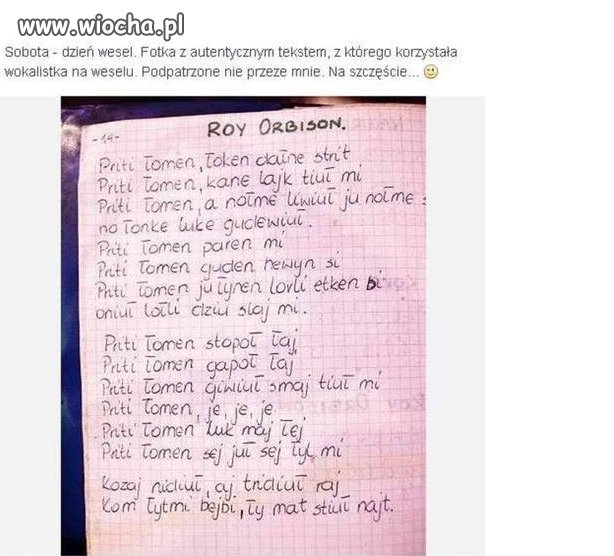 www.wiocha.pl
Sobota - dzień wesel. Fotka z autentycznym tekstem, z którego korzystała
wokalistka na weselu. Podpatrzone nie przeze mnie. Na szczęście... 🙂
-14-
ROY ORBISON.
Priti Łomen, Łoken daune strit
Priti Łomen, kane lajk tiuł mi
Priti Łomen, a nołme liwiuł ju nołme
no Łonke luke gudewiuł.
Priti Łomen paren mi
Priti Łomen guden hewyn si
Priti Łomen ju Łynen lovli etken bi
oniuł lołli dziu slaj mi.
Priti Łomen stopoł Łaj
Priti Łomen gapoł Łaj
Priti Łomen giwiuł smaj tiuł mi
Priti Łomen, je, je, je
Priti Łomen luk maj Łej
Priti Łomen sej juł sej Łył mi
Kozaj nidiuł, aj tridiuł raj
Kom Łytmi bejbi, Ły mat stiuł najt.